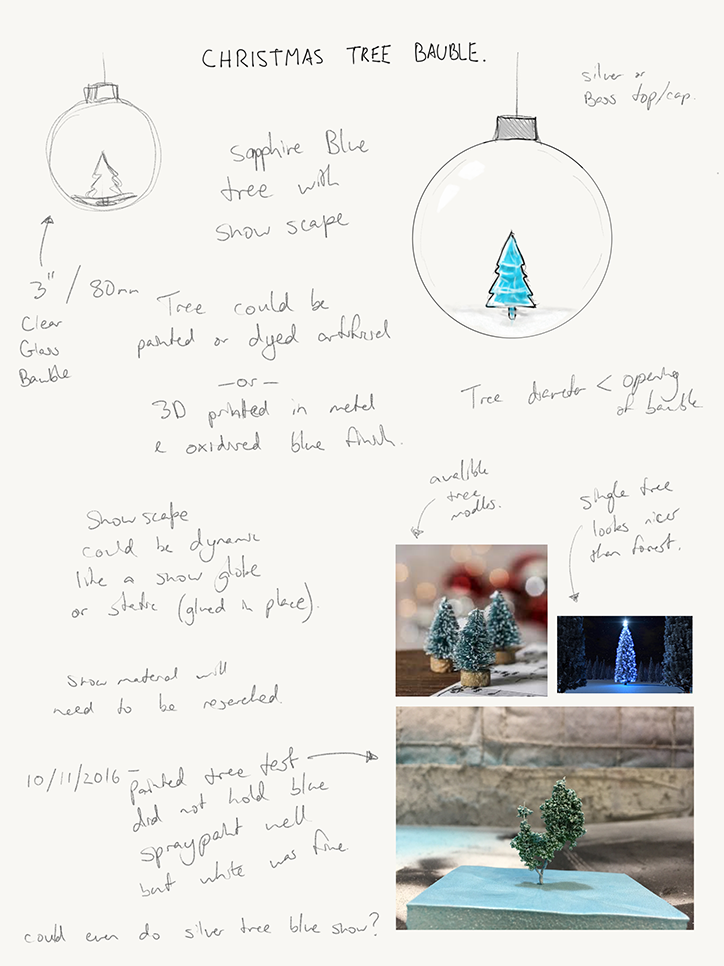 CHRISTMAS TREE BAUBLE.
silver or
Bass top/cap.
Sapphire Blue
tree with
Snow scape
3" / 80mm
Clear
Glass
Bauble
Tree could be
painted or dyed artificial
—or—
3D printed in metal
& oxidised blue finish.
Tree diameter < opening
of bauble
avalible
tree
modles.
single tree
looks nicer
than forest.
Snow scape
could be dynamic
like a snow globe
or static (glued in place).
Snow material will
need to be reserched.
10/11/2016 – painted tree test
did not hold blue
spraypaint well.
but white was fine.
could even do silver tree blue snow?